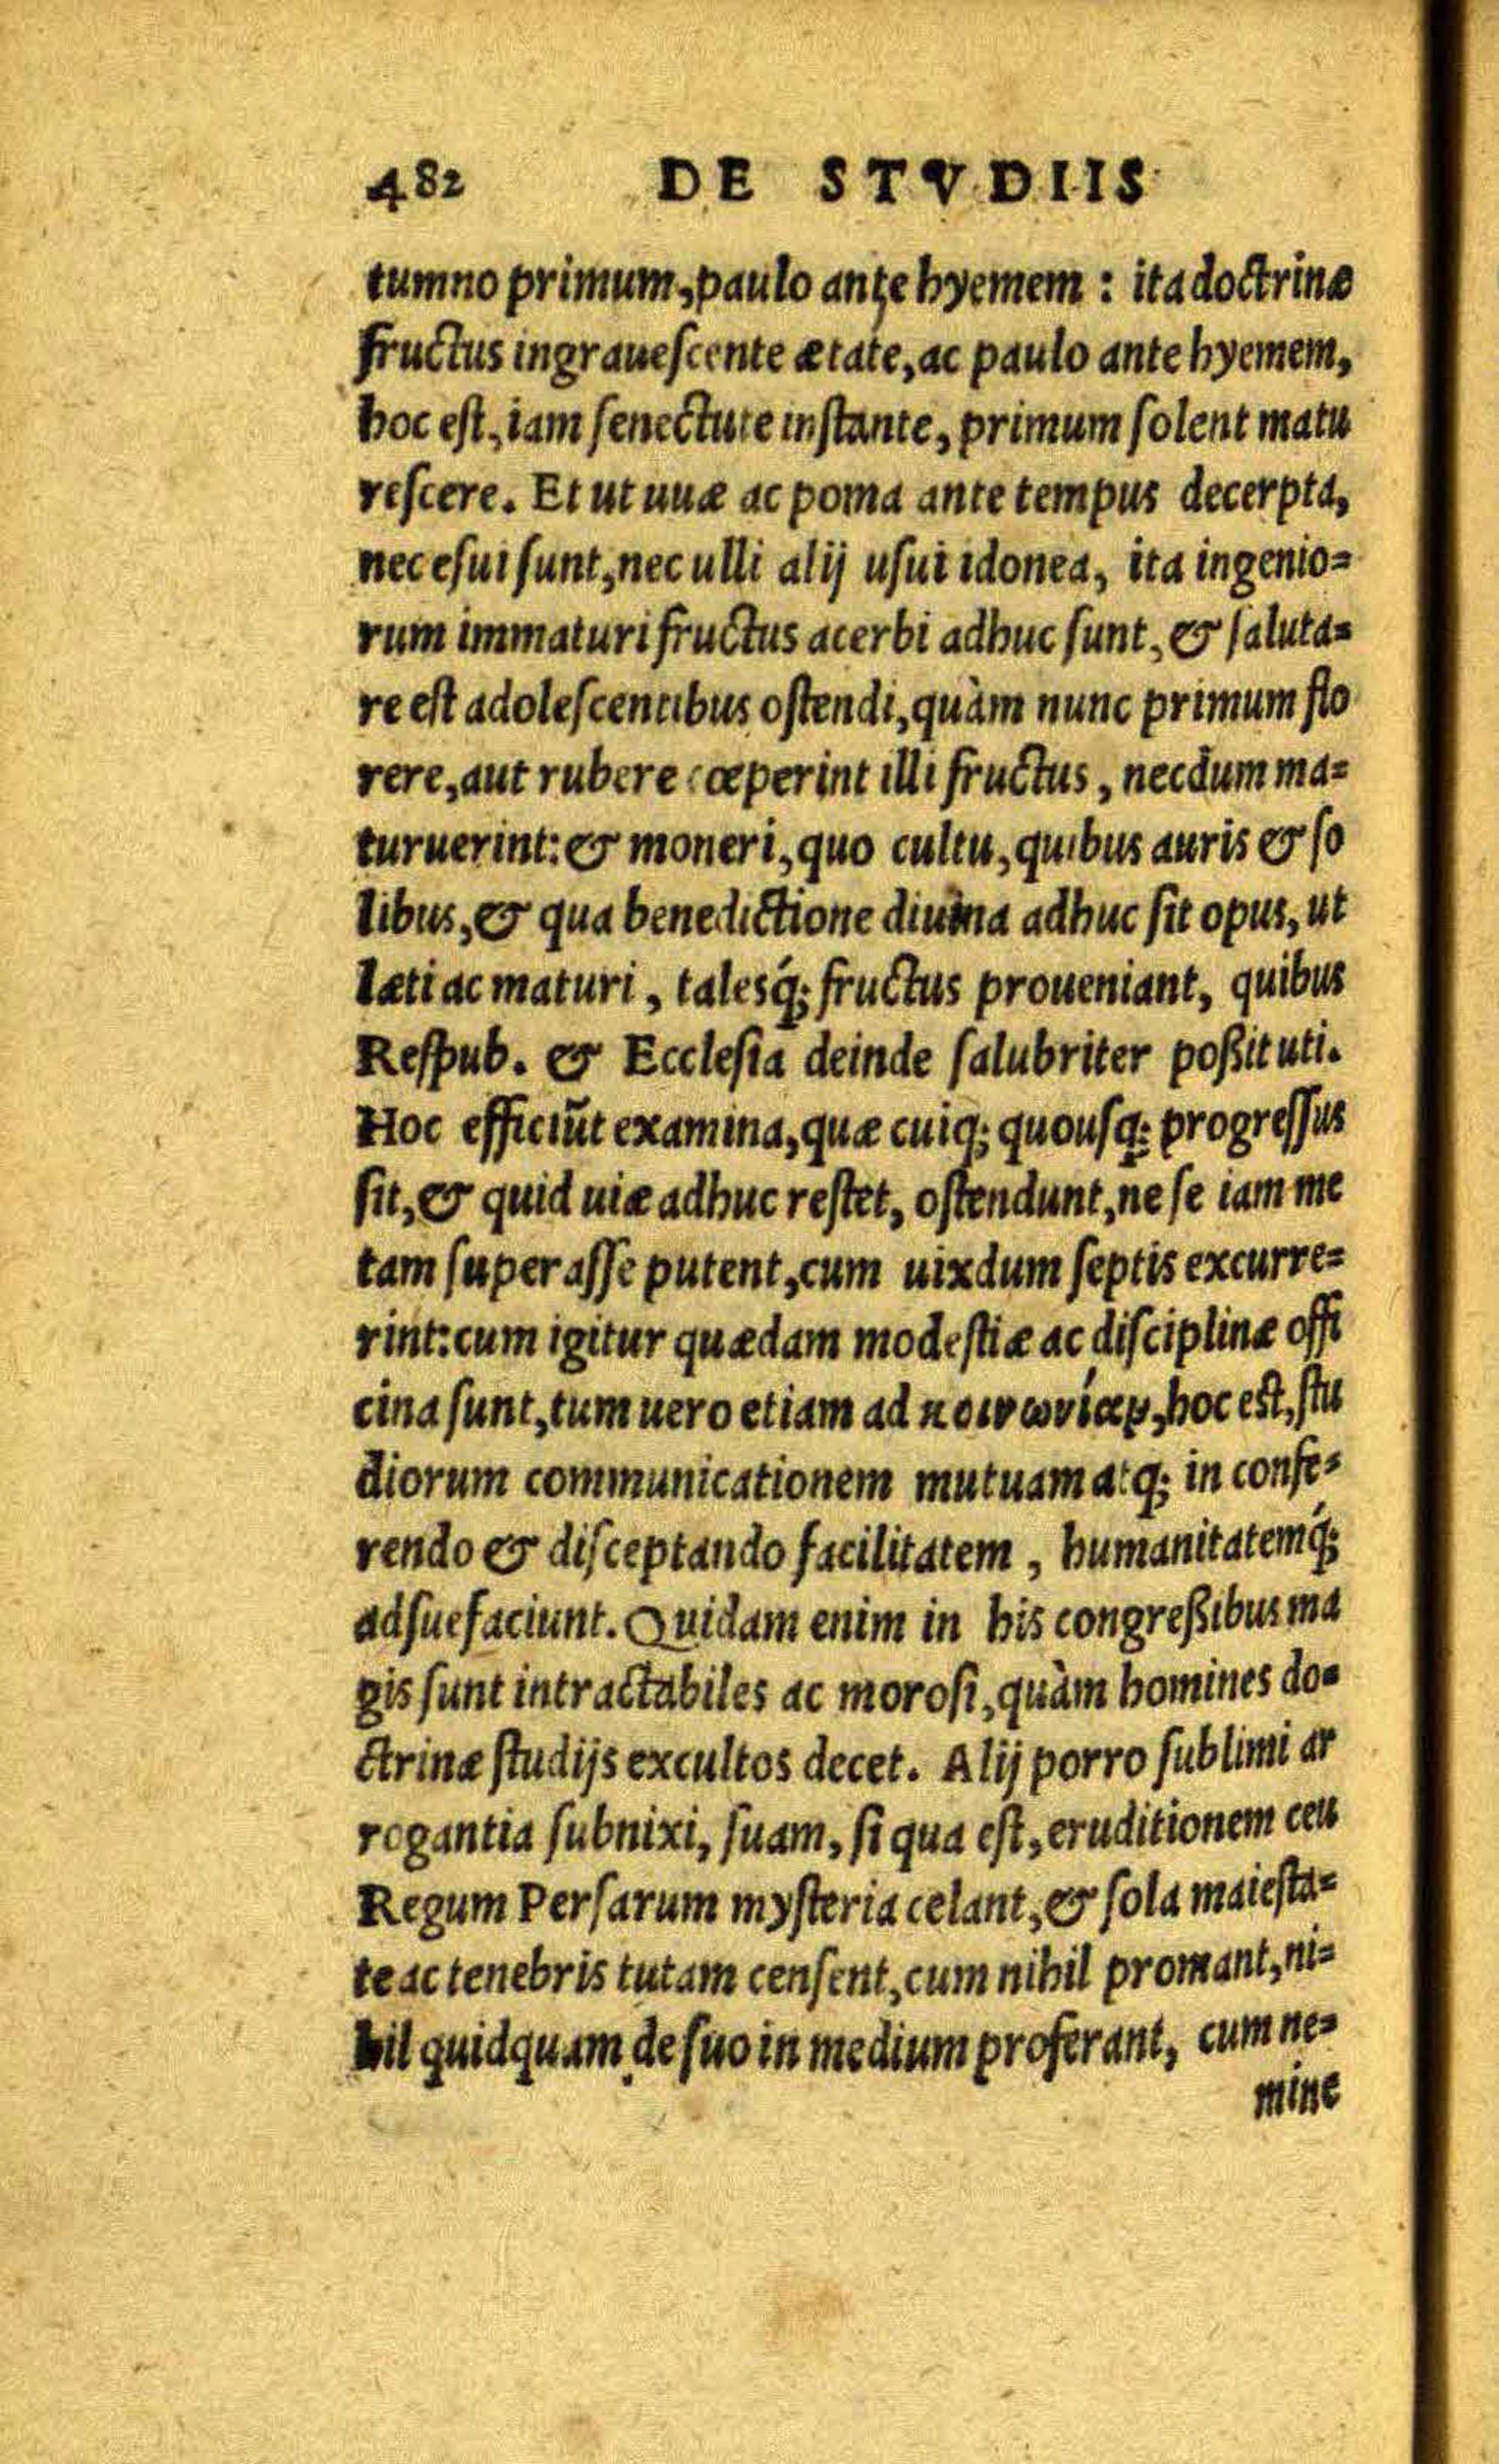 482 DE STVDIIS
tumno primum, paulo ante hyemem : ita doctrinæ
fructus ingrauescente ætate, ac paulo ante hyemem,
hoc est, iam senectute instante, primum solent matu
rescere. Et ut uuæ ac poma ante tempus decerpta,
nec esui sunt, nec ulli alij usui idonea, ita ingenio=
rum immaturi fructus acerbi adhuc sunt, & saluta=
re est adolescentibus ostendi, quàm nunc primum flo
rere, aut rubere cœperint illi fructus, necdum ma=
turuerint: & moneri, quo cultu, quibus auris & so
libus, & qua benedictione diuina adhuc sit opus, ut
læti ac maturi, talesq́; fructus proueniant, quibus
Respub. & Ecclesia deinde salubriter poßit uti.
Hoc efficiūt examina, quæ cuiq; quousq; progressus
sit, & quid uiæ adhuc restet, ostendunt, ne se iam me
tam superasse putent, cum uixdum septis excurre=
rint: cum igitur quædam modestiæ ac disciplinæ offi
cina sunt, tum uero etiam ad κοινωνίαν, hoc est, stu
diorum communicationem mutuam atq; in confe=
rendo & disceptando facilitatem, humanitatemq́;
adsuefaciunt. Quidam enim in his congreßibus ma
gis sunt intractabiles ac morosi, quàm homines do=
ctrinæ studijs excultos decet. Alij porro sublimi ar
rogantia subnixi, suam, si qua est, eruditionem ceu
Regum Persarum mysteria celant, & sola maiesta=
te ac tenebris tutam censent, cum nihil promant, ni=
hil quidquam de suo in medium proferant, cum ne=
mine